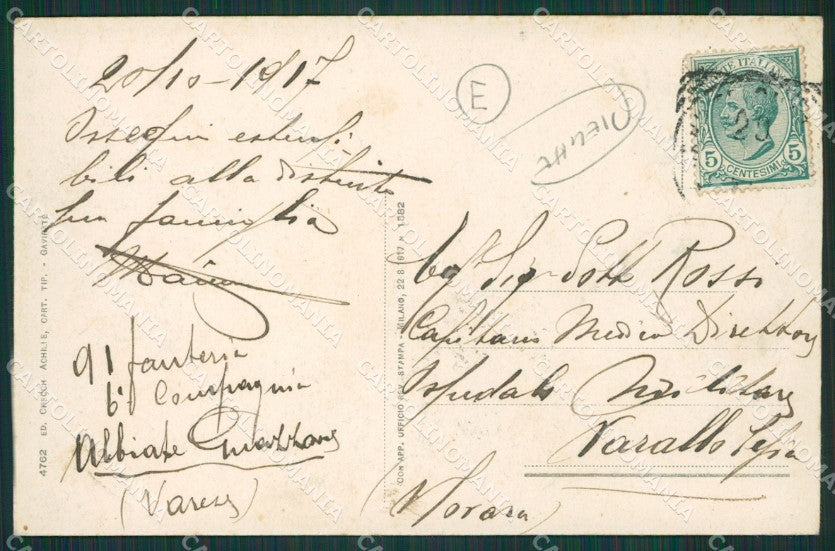 20/10-1917
Ossequi estensi
bili alla distinta
Sua famiglia
91 fanteria
6a Compagnia
Abbiate Guazzone
(Varese)
4762 ED. CRECCHI ACHILLE, CART. TIP. - GAVIRATE
CON APP. UFFICIO REV. STAMPA - MILANO, 22 8 1917 N 1882
E
POSTE ITALIANE
5 CENTESIMI 5
Sig. Dott Rossi
Capitano Medico Direttore
Ospedale Militare
Varallo Sesia
Novara
CARTOLINOMANIA